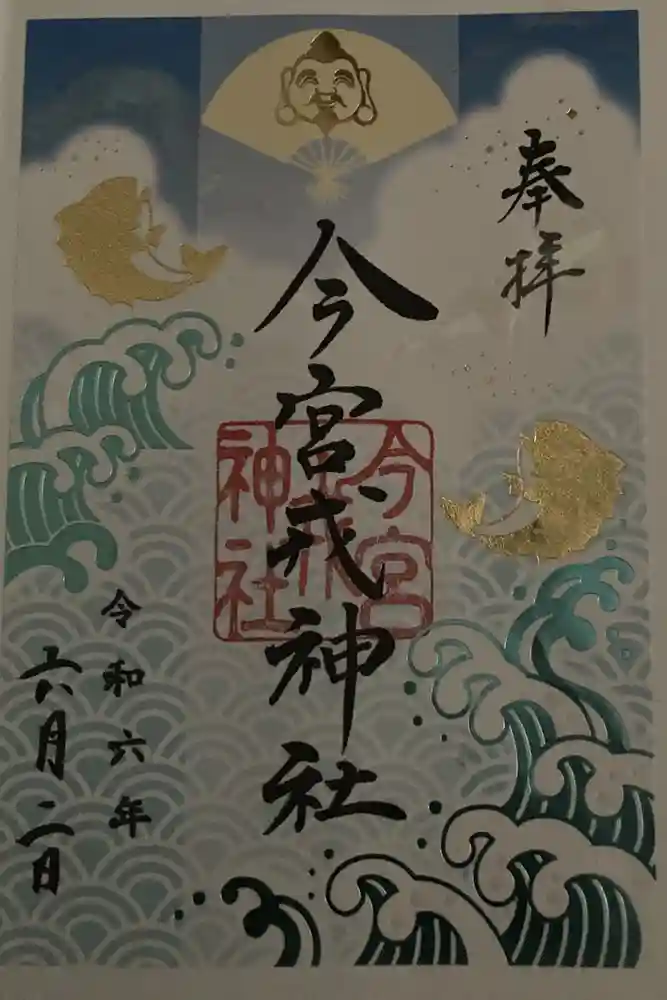 奉拝
今宮戎神社
今宮
戎
神社
令和六年
六月二日